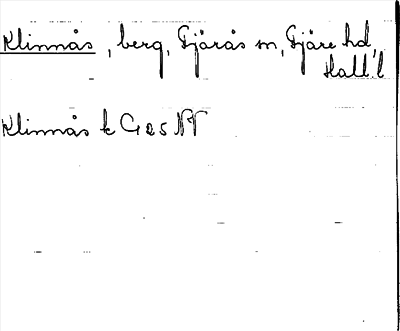 Klinnås, berg, Fjärås sn, Fjäre hd,
Hall. l
Klinnås k G 25 NV